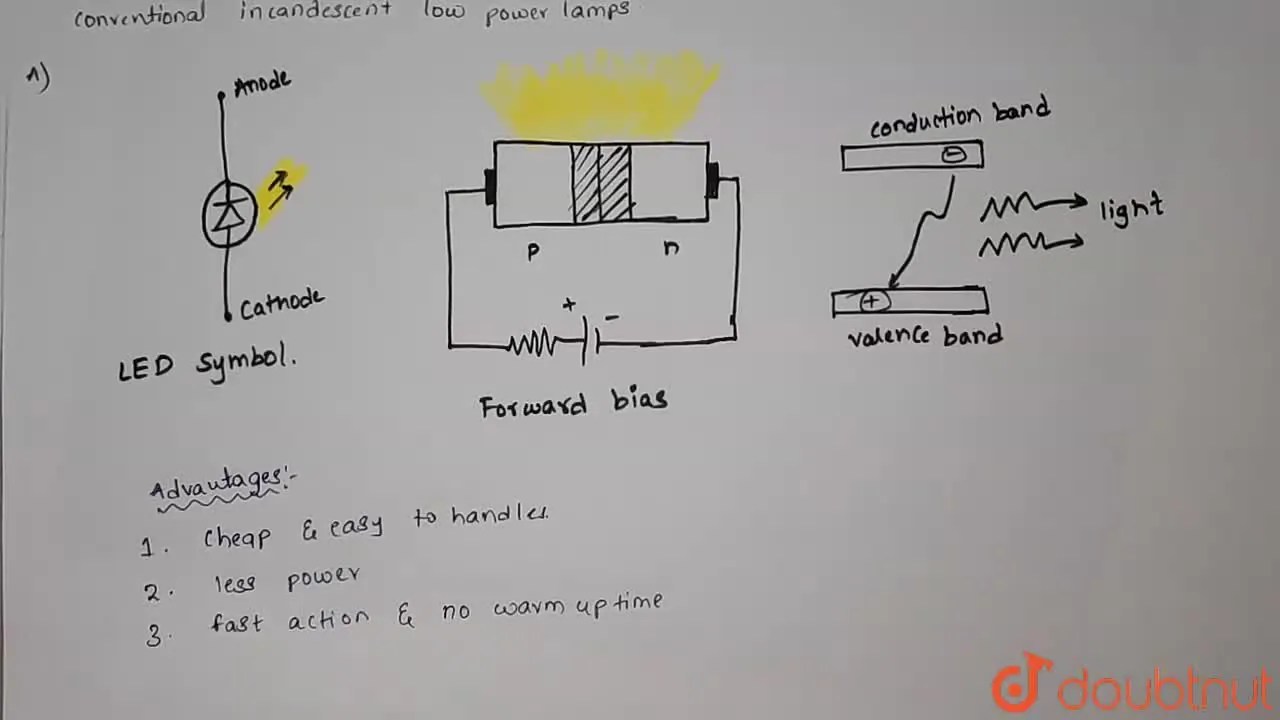 conventional incandescent low power lamps
1)
Anode
Cathode
LED symbol.
p
n
+
-
Forward bias
conduction band
-
light
+
valence band
Advantages:-
1. cheap & easy to handles.
2. less power
3. fast action & no warm up time
doubtnut